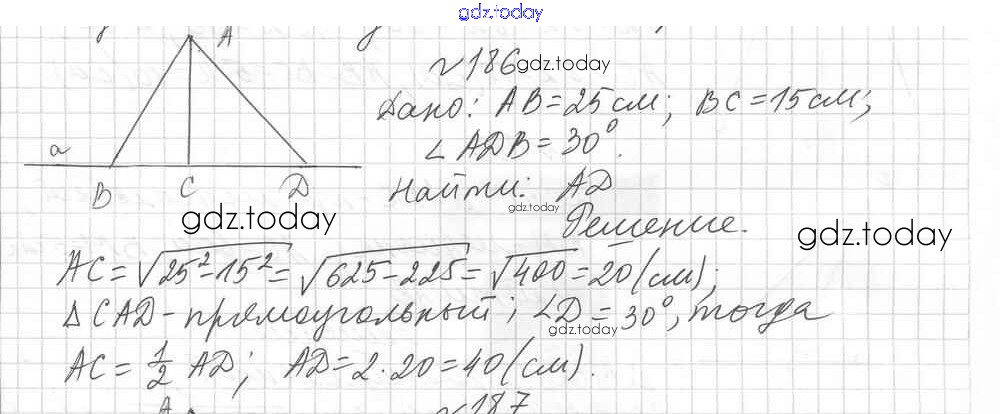 gdz.today
A
a
B C D
№186
gdz.today
Дано: AB=25см; BC=15см;
∠ADB=30°.
Найти: AD
gdz.today
gdz.today
Решение.
gdz.today
AC=√25²-15²=√625-225=√400=20(см);
△CAD-прямоугольный; ∠D=30°, тогда
gdz.today
AC=1/2 AD; AD=2·20=40(см).
A
№187